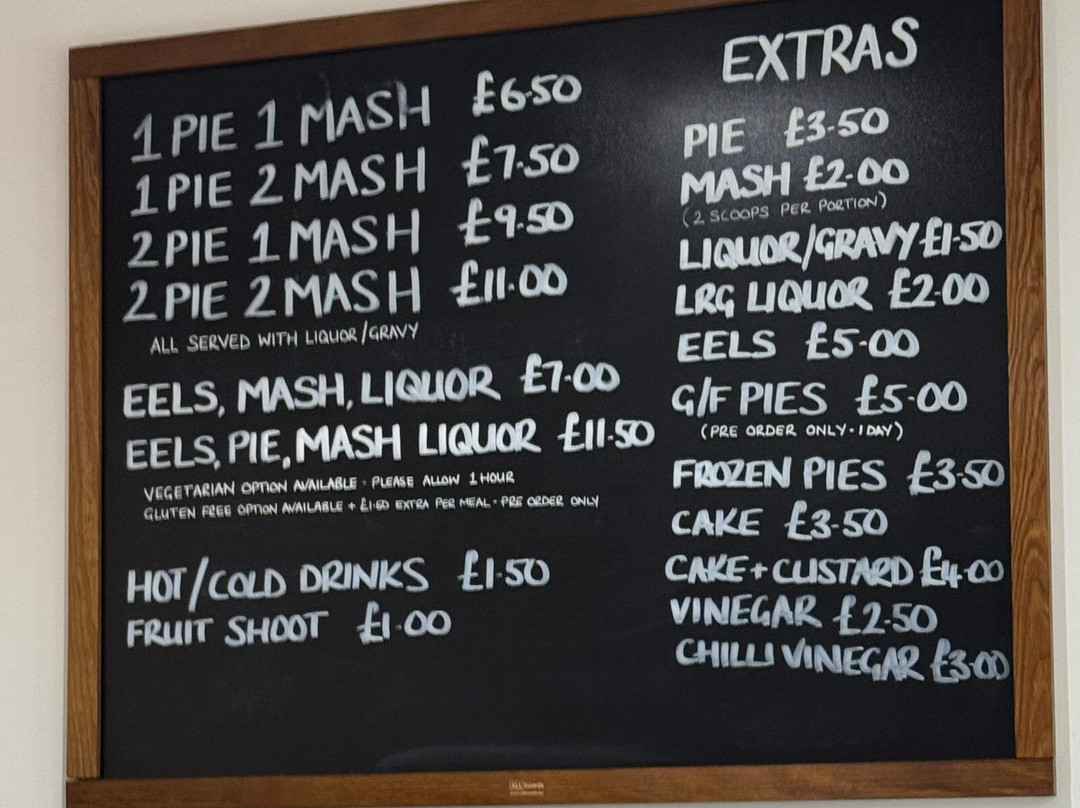 1 PIE 1 MASH £6.50
1 PIE 2 MASH £7.50
2 PIE 1 MASH £9.50
2 PIE 2 MASH £11.00
ALL SERVED WITH LIQUOR/GRAVY
EELS, MASH, LIQUOR £7.00
EELS, PIE, MASH LIQUOR £11.50
VEGETARIAN OPTION AVAILABLE - PLEASE ALLOW 1 HOUR
GLUTEN FREE OPTION AVAILABLE + £1.50 EXTRA PER MEAL - PRE ORDER ONLY
HOT/COLD DRINKS £1.50
FRUIT SHOOT £1.00
EXTRAS
PIE £3.50
MASH £2.00
(2 SCOOPS PER PORTION)
LIQUOR/GRAVY £1.50
LRG LIQUOR £2.00
EELS £5.00
G/F PIES £5.00
(PRE ORDER ONLY - 1 DAY)
FROZEN PIES £3.50
CAKE £3.50
CAKE + CUSTARD £4.00
VINEGAR £2.50
CHILLI VINEGAR £3.00